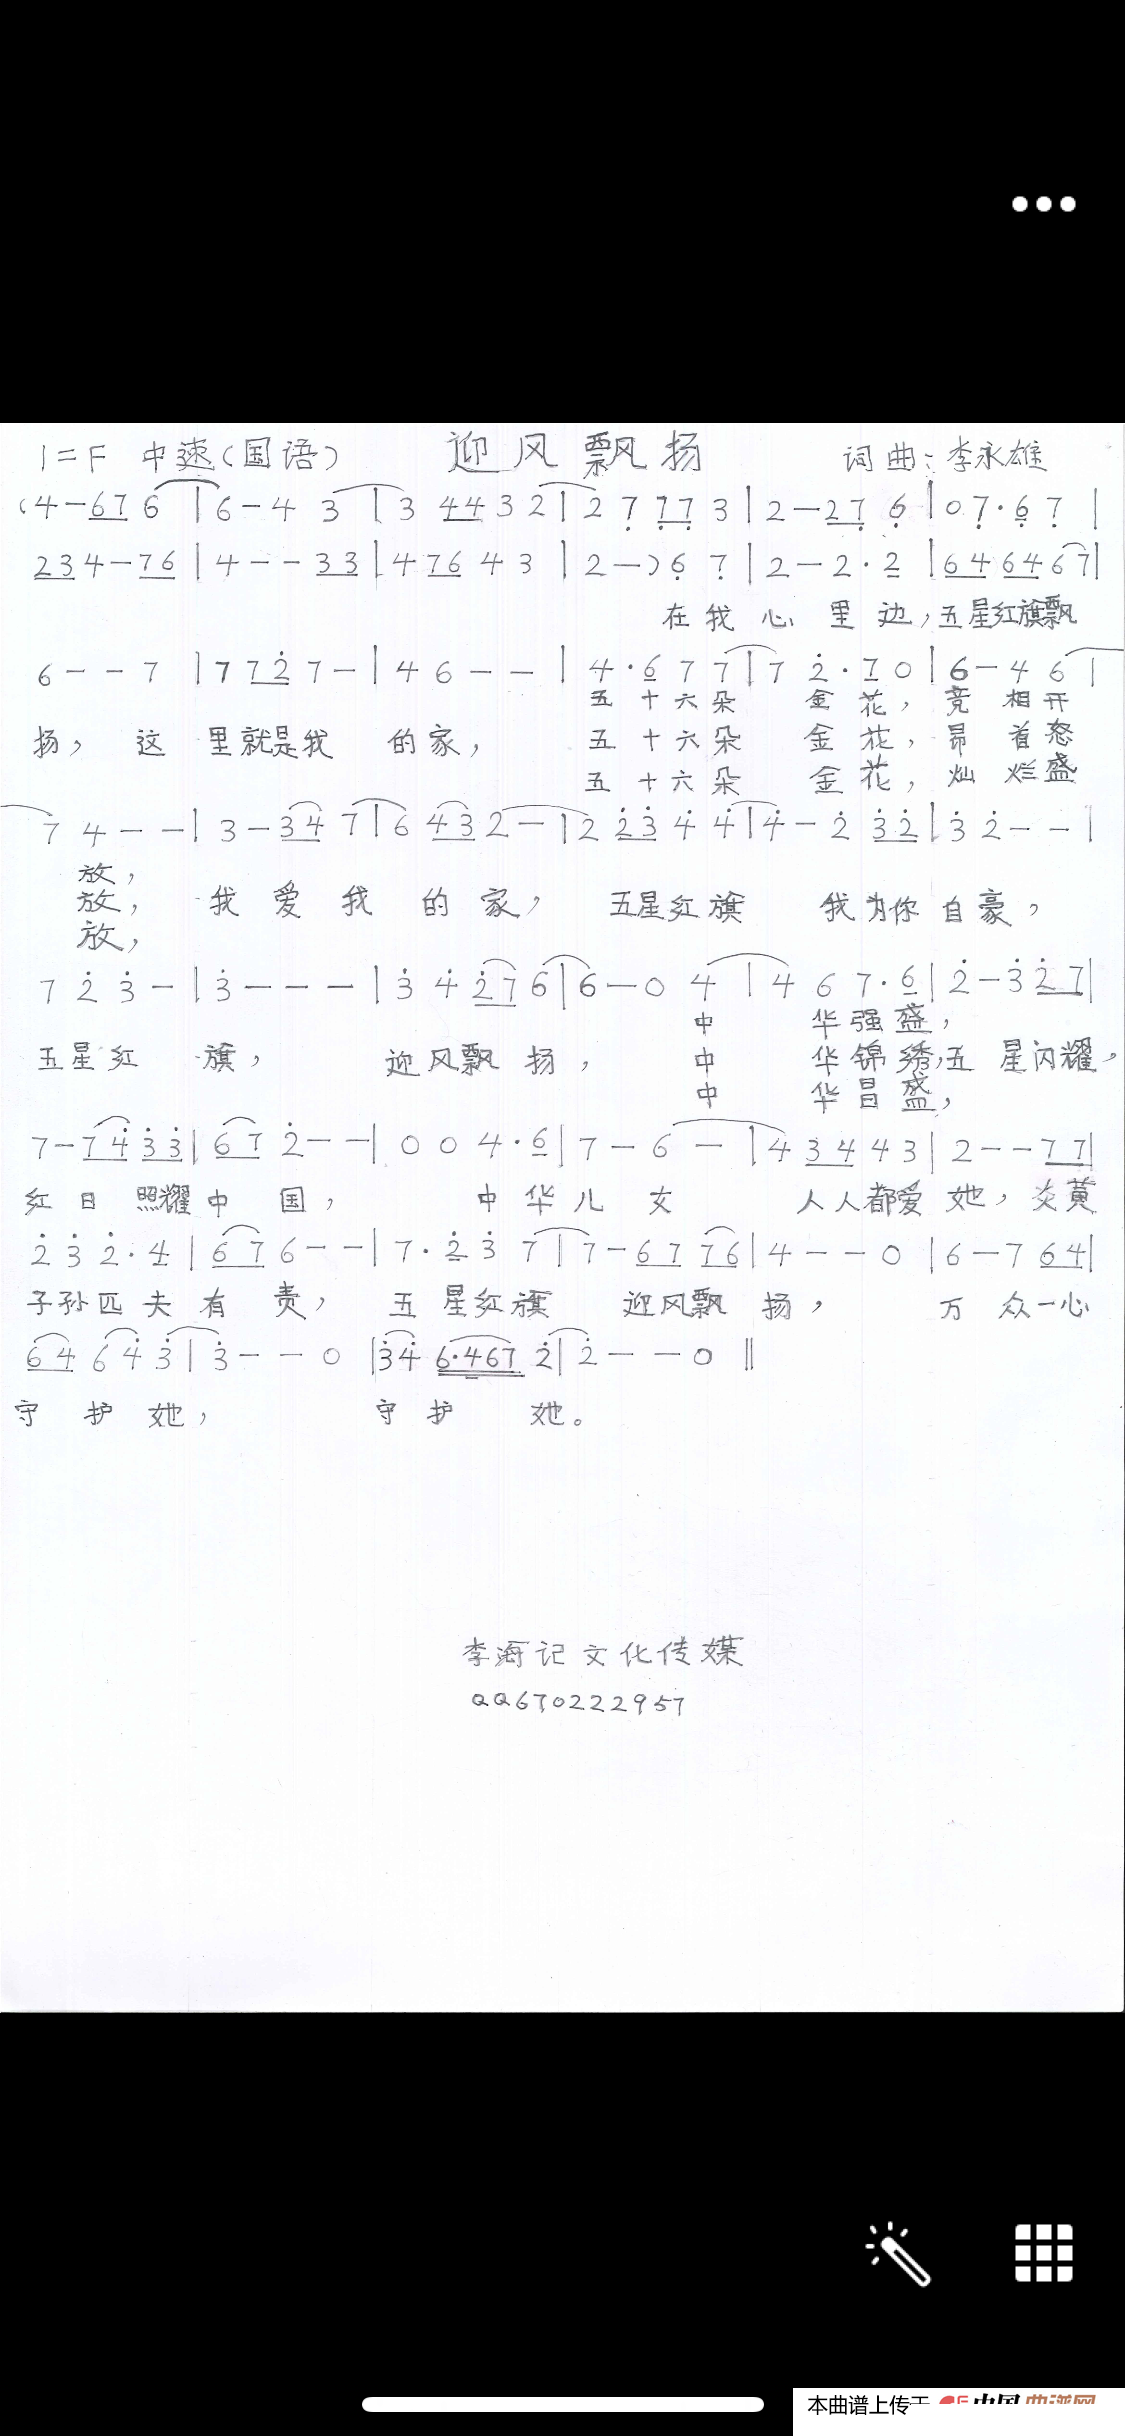 1=F 中速(国语) 迎风飘扬 词曲:李永雄
(4-676|6-4 3|3 4432|2 7 773|2-27 6|0 7·67|
234-76|4--33|4 76 4 3|2-)6 7|2-2·2|64 64 67|
在我心里边,五星红旗飘
6--7|7 727-|46--|4·6 7 7|7 2·70|6-4 6|
五十六朵 金花,竞相开
扬,这里就是我的家,五十六朵 金花,昂首怒
五十六朵 金花,灿烂盛
7 4--|3-34 7|6 43 2-|2 23 4 4|4-2 32|3 2--|
放,
放,我爱我的家,五星红旗 我为你自豪,
放,
7 2 3-|3---|3 4 27 6|6-0 4|4 6 7·6|2-3 27|
中 华强盛,
五星红旗,迎风飘扬,中 华锦绣,五星闪耀,
中 华昌盛,
7-74 33|67 2--|0 0 4·6|7-6-|4 34 4 3|2--77|
红日照耀中国,中华儿女 人人都爱她,炎黄
2 3 2·4|67 6--|7·2 3 7|7-67 76|4--0|6-7 64|
子孙匹夫有责,五星红旗 迎风飘扬,万众一心
64 6 4 3|3--0|34 6·467 2|2--0‖
守护她,守护她。
李海记文化传媒
QQ670222957
本曲谱上传于 中国曲谱网